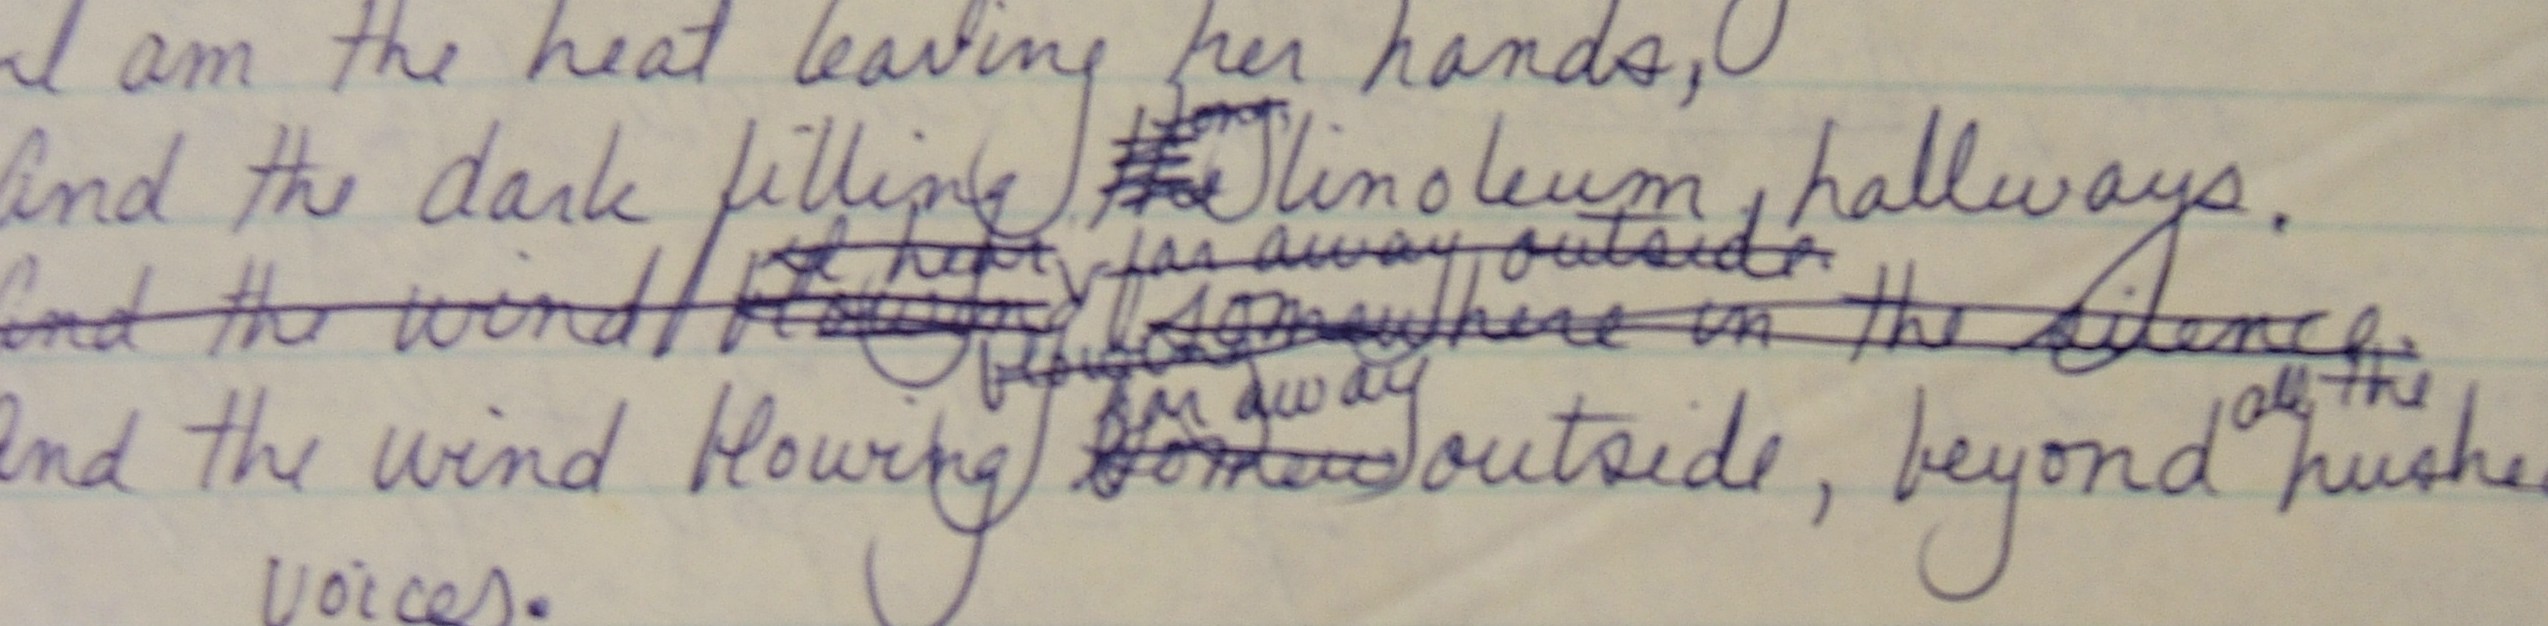 I am the heat leaving her hands,
And the dark filling linoleum, hallways.
far away outside
And the wind somewhere in the silence.
blowing
far away
all the
And the wind blowing outside, beyond
voices.